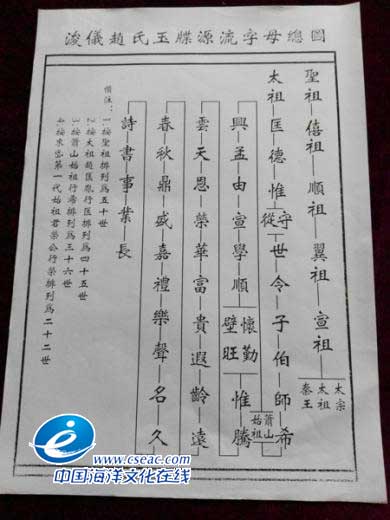 浚儀趙氏玉牒源流字母總圖
聖祖—僖祖—順祖—翼祖—宣祖
太宗
太祖
秦王
太祖匡—德—惟
守
從
世—令—子—伯—師—希
蕭山
始祖
興—孟—由—宣—學—順
懷勤
璧旺
惟—騰
雲—天—恩—榮—華—富—貴—遐—齡—遠
春—秋—鼎—盛—嘉—禮—樂—聲—名—久
詩—書—事—業—長
備注：
1.按聖祖排列爲五十世
2.按太祖趙匡胤行匡排列爲四十五世
3.按蕭山始祖行希排列爲三十六世
4.按東第一代始祖君榮公行榮排列爲二十二世
www.cseac.com
中国海洋文化在线